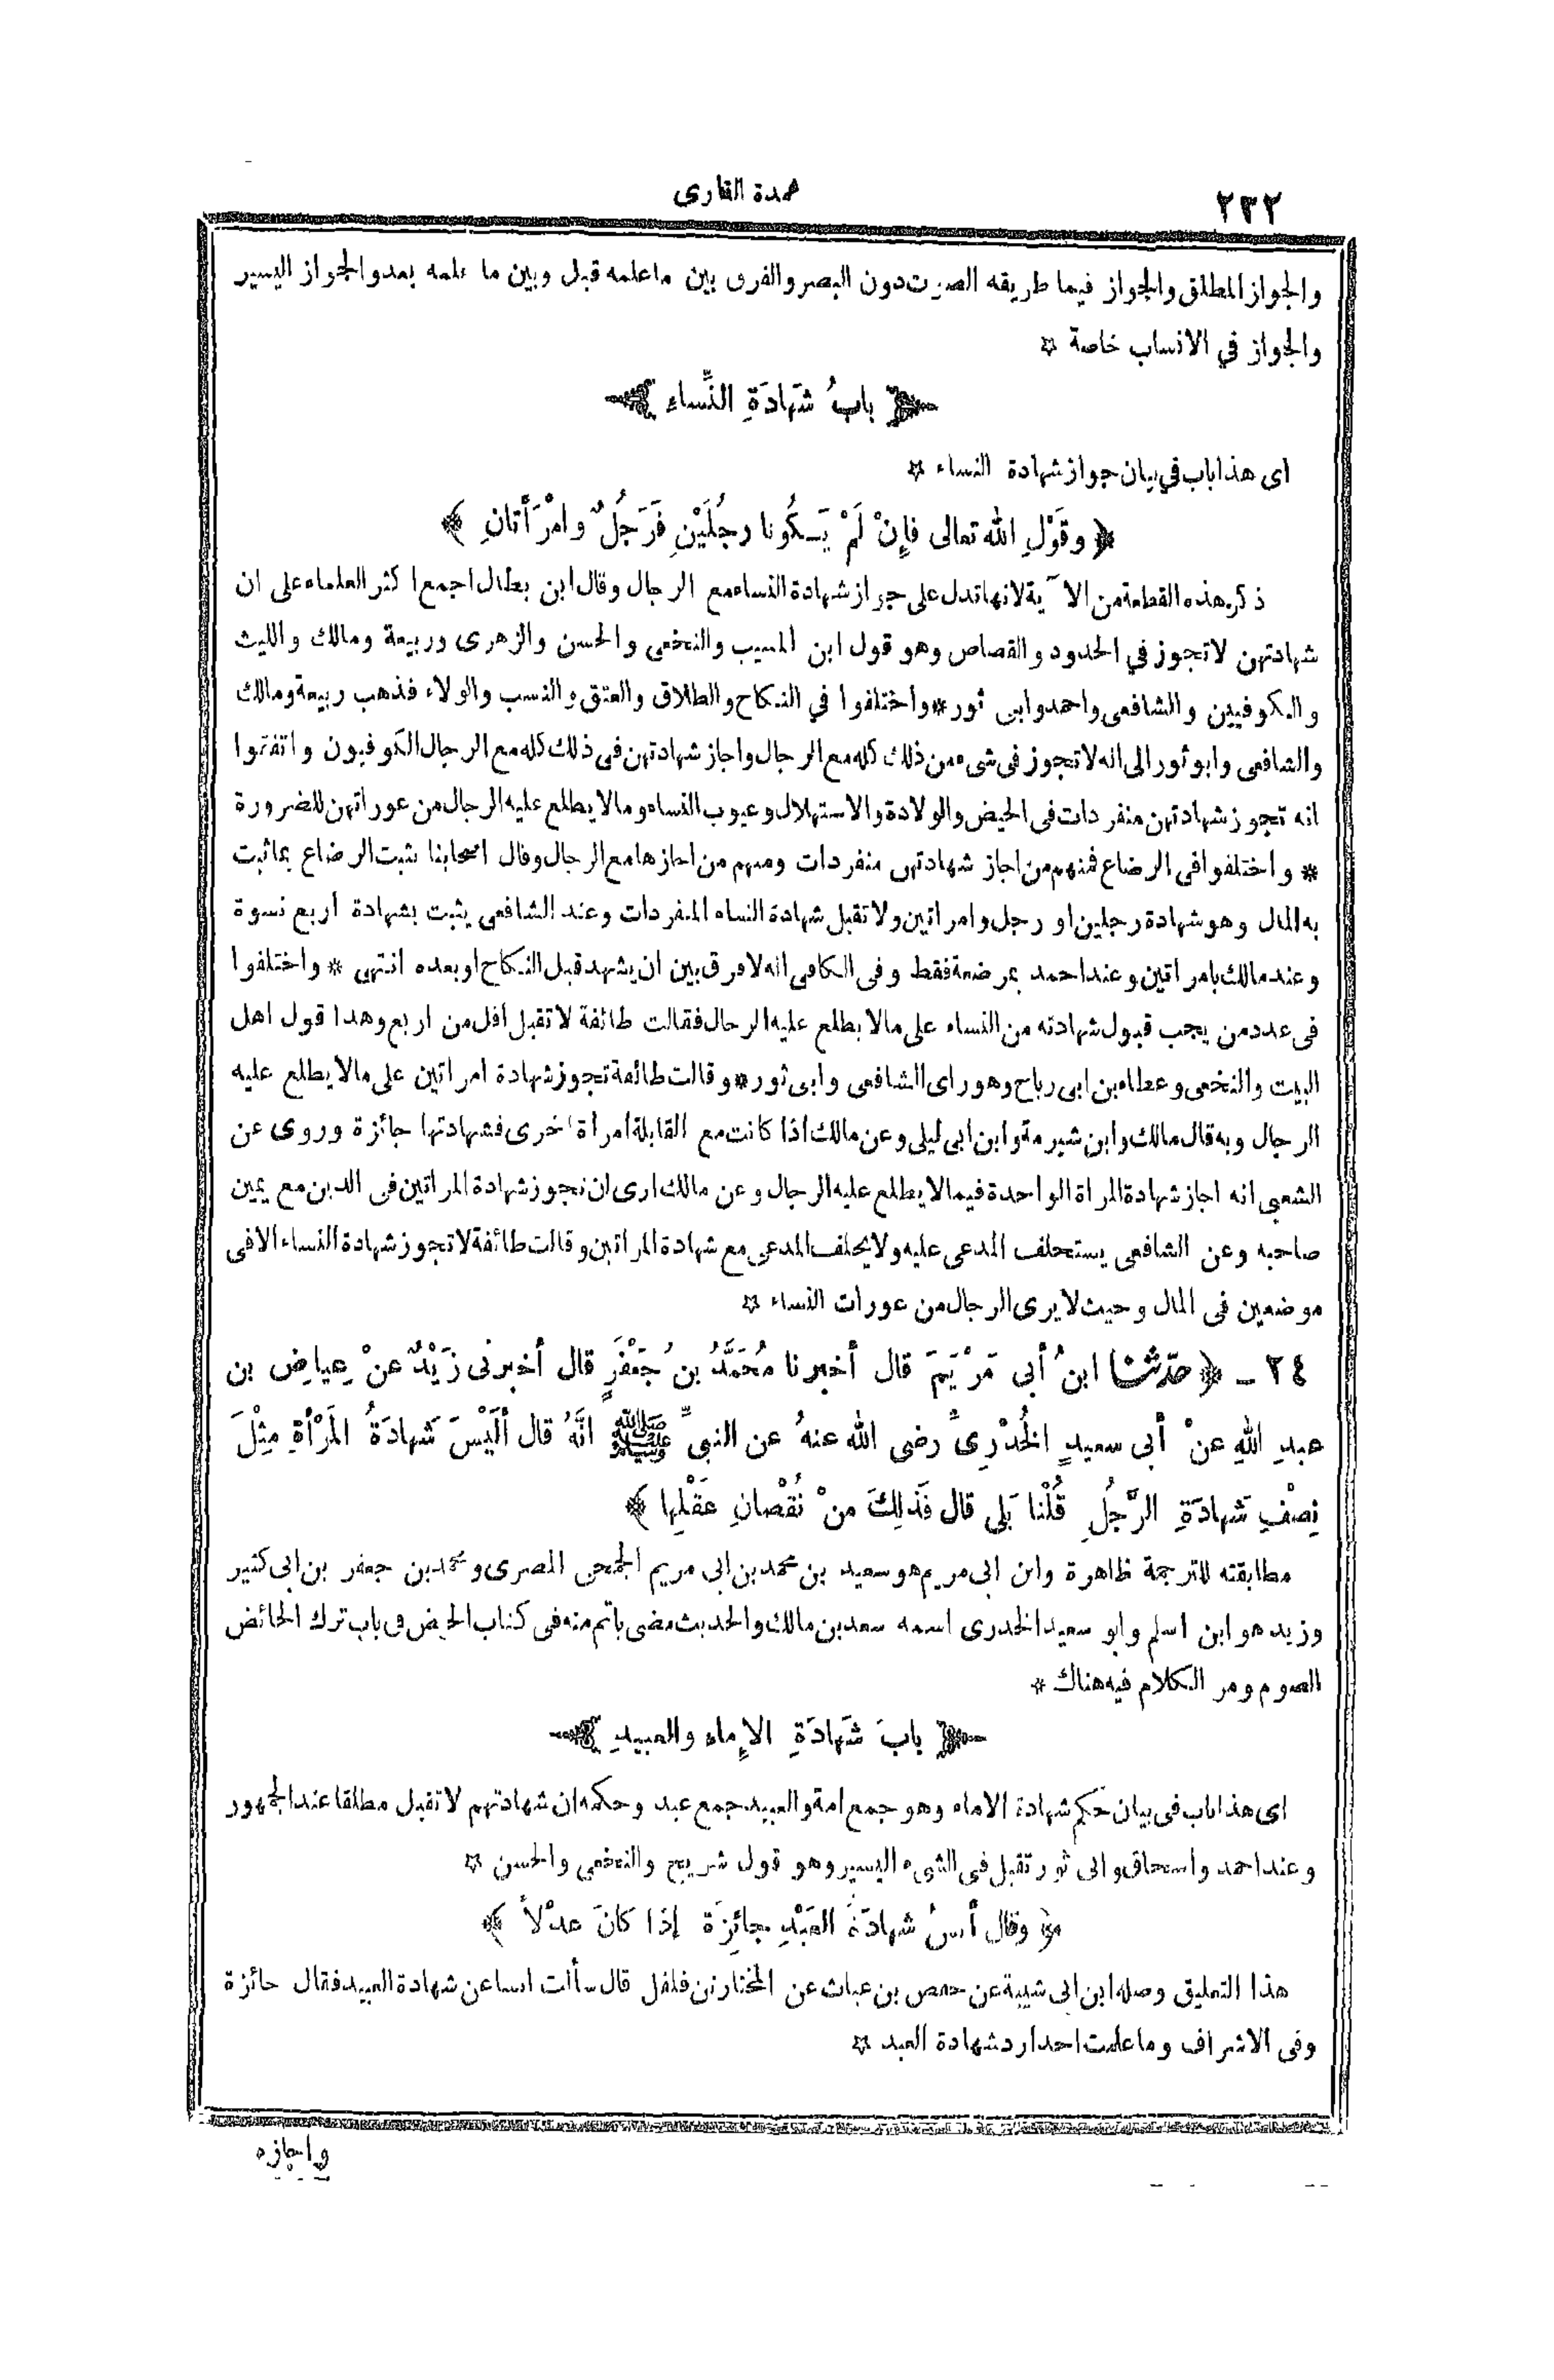 ٢٢٢
عمدة القارى
والجواز المطلق والجواز فيما طريقه الصوت دون البصر والفرق بين ما علمه قبل وبين ما علمه بعد والجواز اليسير
والجواز في الانساب خاصة ☆
﴿ بابُ شَهادَةِ النِّساءِ ﴾
اى هذا باب في بيان جواز شهادة النساء ☆
﴿ وقَوْلِ الله تعالى فإِنْ لَمْ يَكُونا رجُلَيْنِ فَرَجُلٌ وامْرَأتانِ ﴾
ذكر هذه القطعة من الآية لانها تدل على جواز شهادة النساء مع الرجال وقال ابن بطال اجمع اكثر العلماء على ان
شهادتهن لا تجوز في الحدود والقصاص وهو قول ابن المسيب والنخعى والحسن والزهرى وربيعة ومالك والليث
والكوفيين والشافعى واحمد وابى ثور * واختلفوا في النكاح والطلاق والعتق والنسب والولاء فذهب ربيعة ومالك
والشافعى وابو ثور الى انه لا تجوز فى شىء من ذلك كله مع الرجال واجاز شهادتهن فى ذلك كله مع الرجال الكوفيون واتفقوا
انه تجوز شهادتهن منفردات فى الحيض والولادة والاستهلال وعيوب النساء وما لا يطلع عليه الرجال من عوراتهن للضرورة
* واختلفوا فى الرضاع فمنهم من اجاز شهادتهن منفردات ومنهم من اجازها مع الرجال وقال اصحابنا يثبت الرضاع بما ثبت
به المال وهو شهادة رجلين او رجل وامراتين ولا تقبل شهادة النساء المنفردات وعند الشافعى يثبت بشهادة أربع نسوة
وعند مالك بامراتين وعند احمد بمرضعة فقط وفى الكافى انه لا فرق بين ان يشهد قبل النكاح او بعده انتهى * واختلفوا
فى عدد من يجب قبول شهادته من النساء على ما لا يطلع عليه الرجال فقالت طائفة لا تقبل اقل من اربع وهذا قول اهل
البيت والنخعى وعطاء بن ابى رباح وهو راى الشافعى وابى ثور * وقالت طائفة تجوز شهادة امراتين على ما لا يطلع عليه
الرجال وبه قال مالك وابن شبرمة وابن ابى ليلى وعن مالك اذا كانت مع القابلة امراة اخرى فشهادتها جائزة وروى عن
الشعبى انه اجاز شهادة المراة الواحدة فيما لا يطلع عليه الرجال وعن مالك ارى ان تجوز شهادة المراتين فى الدين مع يمين
صاحبه وعن الشافعى يستحلف المدعى عليه ولا يحلف المدعى مع شهادة المراتين وقالت طائفة لا تجوز شهادة النساء الا فى
موضعين فى المال وحيث لا يرى الرجال من عورات النساء ☆
٢٤ - ﴿ حدّثنا ابنُ أبى مَرْيَمَ قال أخبرنا مُحَمَّدُ بنُ جَعْفَرٍ قال أخبرنى زَيْدٌ عنْ عِياضِ بن
عبدِ اللهِ عنْ أبى سعيدٍ الخُدْرِىِّ رضى الله عنهُ عن النبىِّ ﷺ انَّهُ قال ألَيْسَ شَهادَةُ المَرْأةِ مِثْلَ
نِصْفِ شَهادَةِ الرَّجُلِ قُلْنا بَلى قال فَذلِكَ منْ نُقْصانِ عَقْلِها ﴾
مطابقته للترجمة ظاهرة وابن ابى مريم هو سعيد بن محمد بن ابى مريم الجمحى المصرى ومحمد بن جعفر بن ابى كثير
وزيد هو ابن اسلم وابو سعيد الخدرى اسمه سعد بن مالك والحديث مضى باتم منه فى كتاب الحيض فى باب ترك الحائض
الصوم ومر الكلام فيه هناك *
﴿ بابُ شَهادَةِ الإِماءِ والعبيدِ ﴾
اى هذا باب فى بيان حكم شهادة الاماء وهو جمع امة والعبيد جمع عبد وحكمه ان شهادتهم لا تقبل مطلقا عند الجمهور
وعند احمد واسحاق وابى ثور تقبل فى الشىء اليسير وهو قول شريح والنخعى والحسن ☆
﴿ وقال أنسٌ شهادَةُ العَبْدِ جائِزَة إذَا كانَ عدْلاً ﴾
هذا التعليق وصله ابن ابى شيبة عن حفص بن غياث عن المختار بن فلفل قال سألت انسا عن شهادة العبيد فقال جائزة
وفى الاشراف وما علمت احدا رد شهادة العبد ☆
واجازه